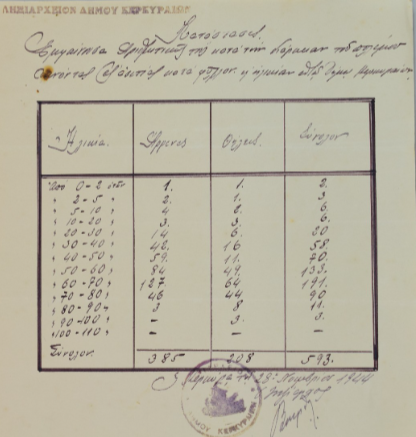 ΛΗΞΙΑΡΧΕΙΟΝ ΔΗΜΟΥ ΚΕΡΚΥΡΑΙΩΝ
Κατάστασις
Εμφαίνουσα αριθμητικώς της κατά την διάρκειαν του πολέμου
θανόντας κατά φύλλον
Ηλικία. Άρρενος Θήλεος Σύνολον
Από 0-2 ετών 1. 1. 2.
" 2-5 " 2. 1. 3
" 5-10 " 4 2. 6.
" 10-20 " 3. 3. 6.
" 20-30 " 14 6. 20
" 30-40 " 42. 16 58.
" 40-50 " 59. 11. 70.
" 50-60 " 84 49. 133.
" 60-70 " 127. 64 191.
" 70-80 " 46 44 90
" 80-90 " 3 8 11.
" 90-100 " - 3. 3.
" 100-110 " - - -
Σύνολον. 385 208 593.
Κέρκυρα τη 23η Νοεμβρίου 1944
ΔΗΜΟΥ ΚΕΡΚΥΡΑΙΩΝ